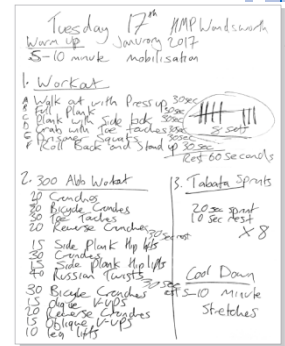 Tuesday 17th HMP Wandsworth
January 2017
Warm up
5-10 minute mobilisation
1. Workout
A Walk out with Press up 30sec
B Full Plank 30sec
C Plank with Side kick 30sec
D Crab with Toe Taches 30sec
E Prisoner Squats 30sec
F Roll Back and Stand up 30sec
8 sets
Rest 60 seconds
2. 300 Abb Workout
20 Crunches
30 Bicycle Crunches
30 Toe Taches
20 Reverse Crunches
30sec rest
15 Side Plank Hip lifts
30 Crunches
15 Side Plank Hip lifts
40 Russian Twists
30sec rest
30 Bicycle Crunches
15 V-ups
20 Reverse Crunches
15 Oblique V-ups
10 leg lifts
3. Tabata Sprints
20 sec sprint
10 sec rest
X 8
Cool Down
5-10 minute
stretches